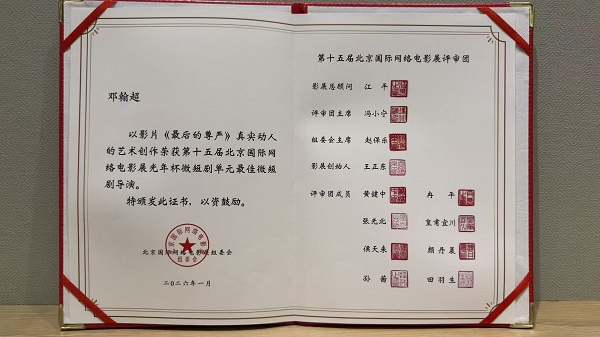 邓翰超
以影片《最后的尊严》真实动人
的艺术创作荣获第十五届北京国际网
络电影展光年杯微短剧单元最佳微短
剧导演。
特颁发此证书，以资鼓励。
北京国际网络电影展组委会
二〇二六年一月
第十五届北京国际网络电影展评审团
影展总顾问 江平
评审团主席 冯小宁
组委会主席 赵保乐
影展创始人 王正东
评审团成员 黄健中 冉平
张光北 皇甫宜川
侯天来 颜丹晨
孙茜 田羽生